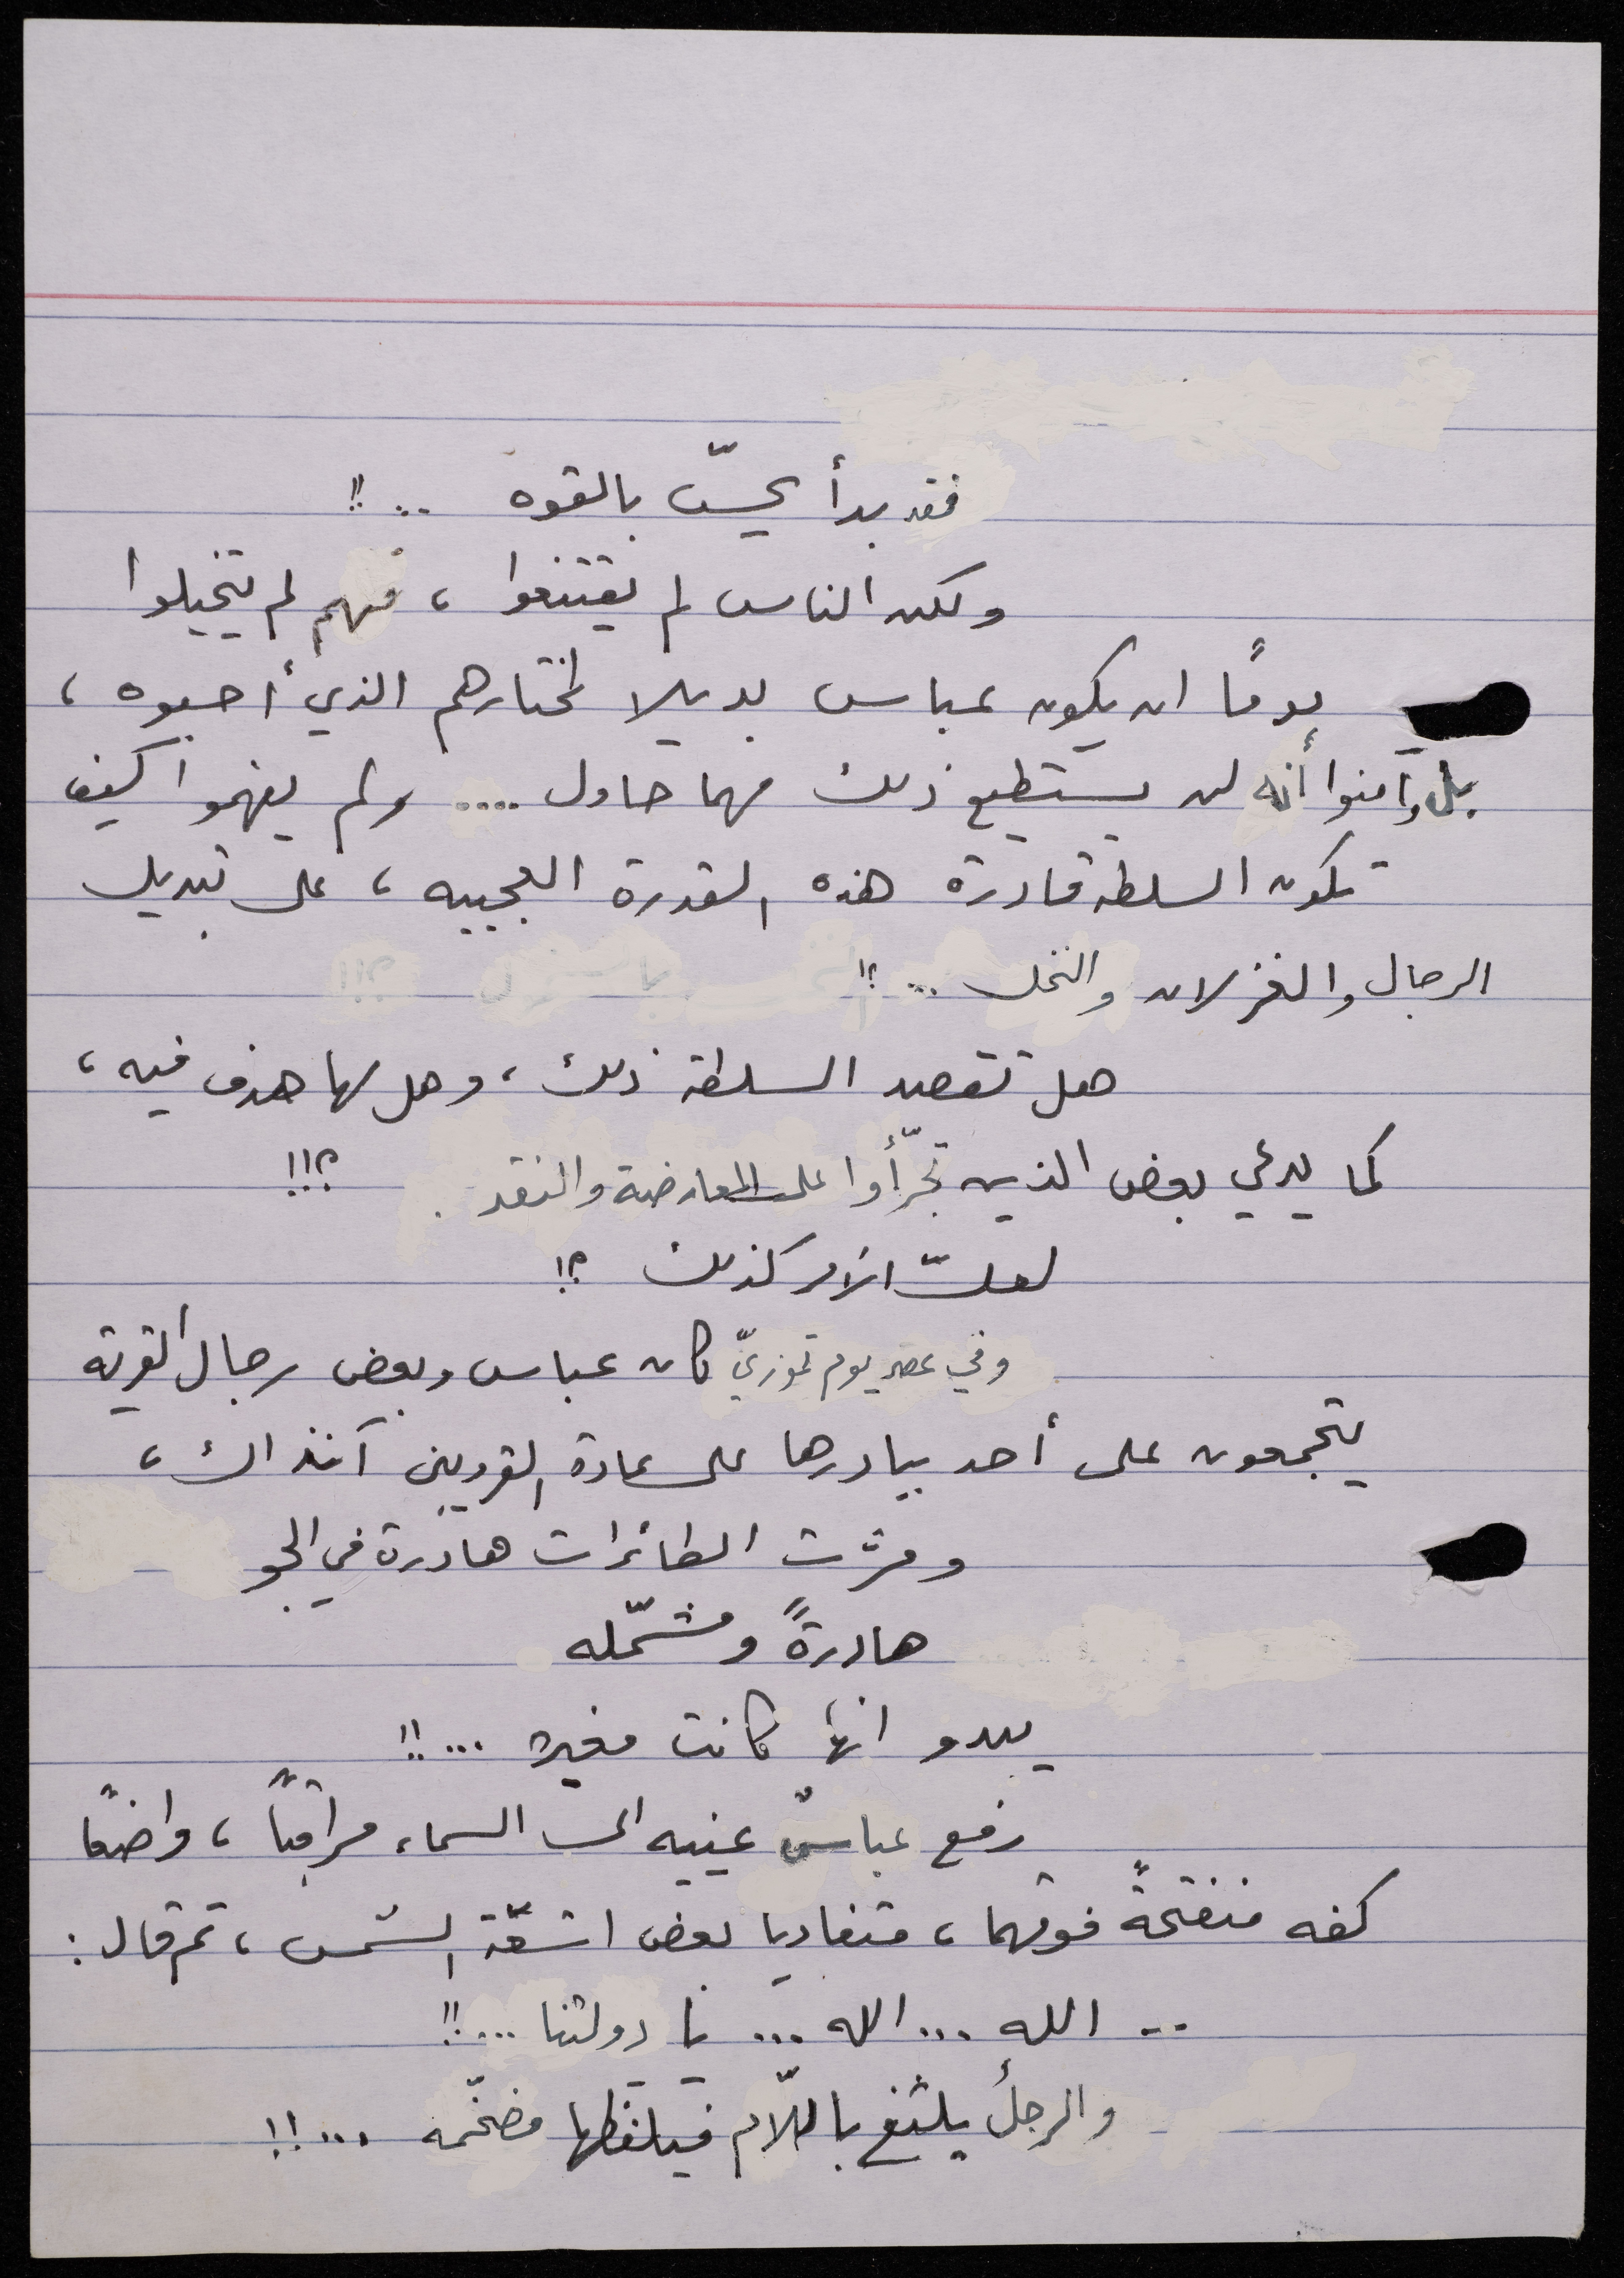 فقد بدأ يحسّ بالقوه ..!!
ولكن الناس لم يقتنعوا ، فهم لم يتخيلوا
يومًا ان يكون عباس بديلا لمختارهم الذي أحبوه ،
بل وآمنوا أنه لن يستطيع ذلك مهما حاول .... ولم يفهموا كيف
تكون السلطه قادرة هذه القدرة العجيبه ، على تبديل
الرجال والغزلان والنخل ...؟!
هل تقصد السلطة ذلك ، وهل لها هدف فيه ،
كما يدعي بعض الذين تجرّأوا على المعارضة والنقد . ؟!!
لعلّ الأمر كذلك ؟!
وفي عصر يوم تموزيّ كان عباس وبعض رجال القرية
يتجمعون على أحد بيادرها على عادة القرويين آنذاك ،
ومرّت الطائرات هادرة في الجو
هادرةً ومشمّله
يبدو انها كانت مغيره ...!!
رفع عباسٌ عينيه الى السماء مراقبًا ، واضعًا
كفه منفتحةً فوقهما ، متفاديا بعض اشعّة الشمس ، ثم قال :
-- الله ... الله ... يا دولتنا ...!!
والرجلُ يلثغ باللّام فيلفظها مضخّمه ...!!